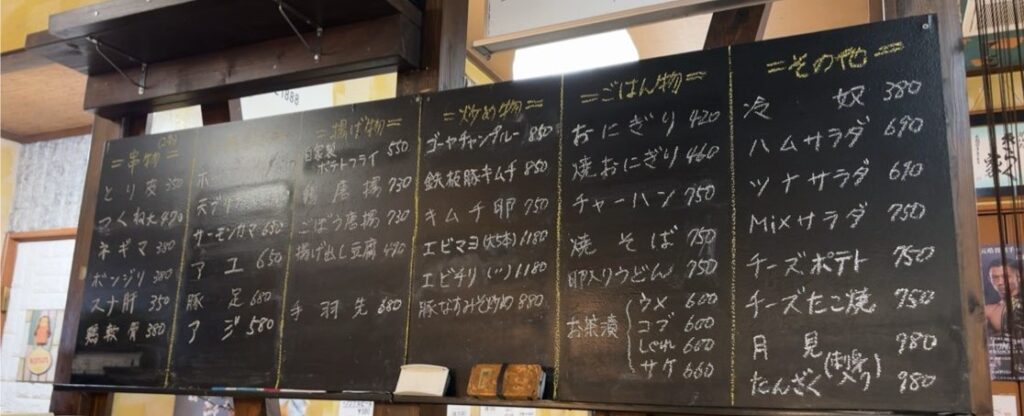 =串物=
とり皮 350
つくね 大 470
ネギマ 380
ボンジリ 380
スナ肝 350
鶏軟骨 380
サーモンカマ 650
アユ 650
豚足 680
アジ 580
=揚げ物=
自家製
ポテトフライ 550
唐揚 730
ごぼう唐揚 730
揚げ出し豆腐 490
手羽先 680
=炒め物=
ゴーヤチャンプルー 850
鉄板豚キムチ 850
キムチ卵 750
エビマヨ(大5本)1180
エビチリ(〃)1180
豚なすみそ炒め 980
=ごはん物=
おにぎり 420
焼おにぎり 460
チャーハン 750
焼そば 750
卵入りうどん 750
お茶漬
ウメ 600
コブ 600
しぐれ 660
サケ 660
=その他=
冷奴 380
ハムサラダ 690
ツナサラダ 690
Mixサラダ 750
チーズポテト 750
チーズたこ焼 750
月見 980
たんざく(刺身入り) 980